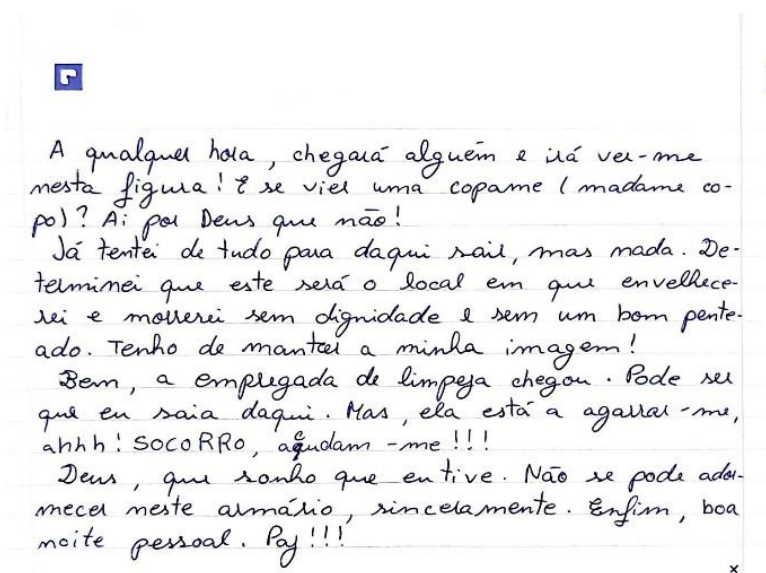 A qualquer hora, chegará alguém e irá ver-me
nesta figura! E se vier uma copame (madame co-
po)? Ai por Deus que não!
Já tentei de tudo para daqui sair, mas nada. De-
terminei que este será o local em que envelhece-
rei e morrerei sem dignidade e sem um bom pente-
ado. Tenho de manter a minha imagem!
Bem, a empregada de limpeza chegou. Pode ser
que eu saia daqui. Mas, ela está a agarrar-me,
ahhh! SOCORRO, acudam-me!!!
Deus, que sonho que eu tive. Não se pode ador-
mecer neste armário, sinceramente. Enfim, boa
noite pessoal. Paz!!!